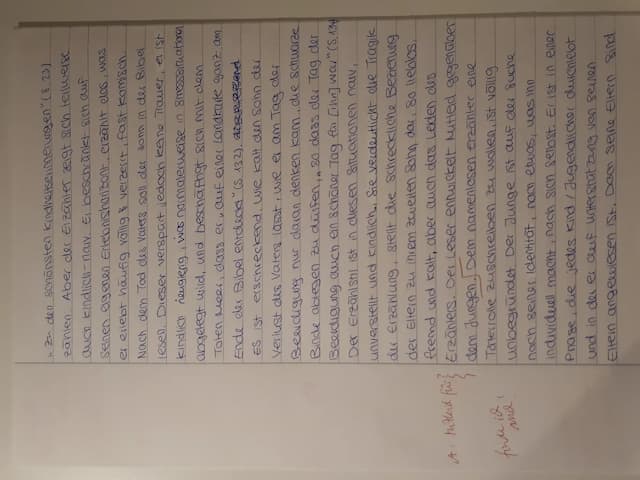 „Zu den schönsten Kindheitserinnerungen" (S. 23)
zählen. Aber der Erzähler zeigt sich teilweise
auch kindlich naiv. Er beschränkt sich auf
seinen eigenen Erlebnishorizont, erzählt das, was
er erlebt häufig völlig verzerrt, fast komisch.
Nach dem Tod des Vaters soll der Sohn in der Bibel
lesen. Dieser verspürt jedoch keine Trauer, er ist
kindlich neugierig, was normalerweise in Stresssituationen
abgelegt wird, und beschäftigt sich mit dem
Toten Meer, dass er „auf einer Landkarte ganz am
Ende der Bibel entdeckt" (S. 132).
Es ist erschreckend, wie kalt den Sohn der
Verlust des Vaters lässt, wie er am Tag der
Beerdigung nur daran denken kann, die schwarze
Binde ablegen zu dürfen, „so dass der Tag der
Beerdigung auch ein schöner Tag für [ihn] war" (S. 134)
Der Erzählstil ist in diesen Situationen naiv,
unverstellt und kindlich. Sie verdeutlicht die Tragik
der Erzählung, stellt die schreckliche Beziehung
der Eltern zu ihrem zweiten Sohn dar, so lieblos,
fremd und kalt, aber auch das Leiden des
Erzählers. Der Leser entwickelt Mitleid gegenüber
dem Jungen. Dem namenlosen Erzähler eine
Täterrolle zuschreiben zu wollen, ist völlig
unbegründet. Der Junge ist auf der Suche
nach seiner Identität, nach etwas, was ihn
individuell macht, nach sich selbst. Er ist in einer
Phase, die jedes Kind / Jugendlicher durchlebt
und in der er auf Unterstützung von seinen
Eltern angewiesen ist. Doch seine Eltern sind
A: Mitleid für
finde ich